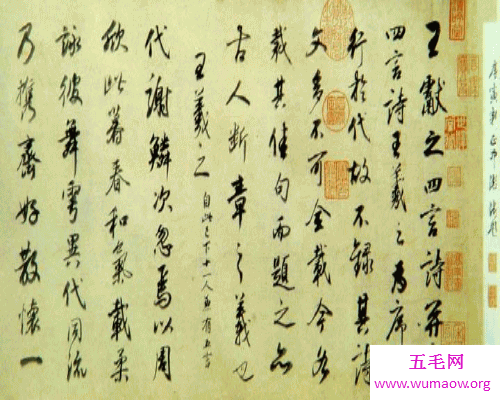 王獻之四言詩并
四言詩王羲之為序
行於代故不錄其詩
文多不可全載今各
裁其佳句而題之亦
古人斷章之義也
王羲之 自此已下十一人並有五言
代謝鱗次忽焉以周
欣此暮春和氣載柔
詠彼舞雩異代同流
乃攜齊好散懷一
五毛网
www.wumaow.org